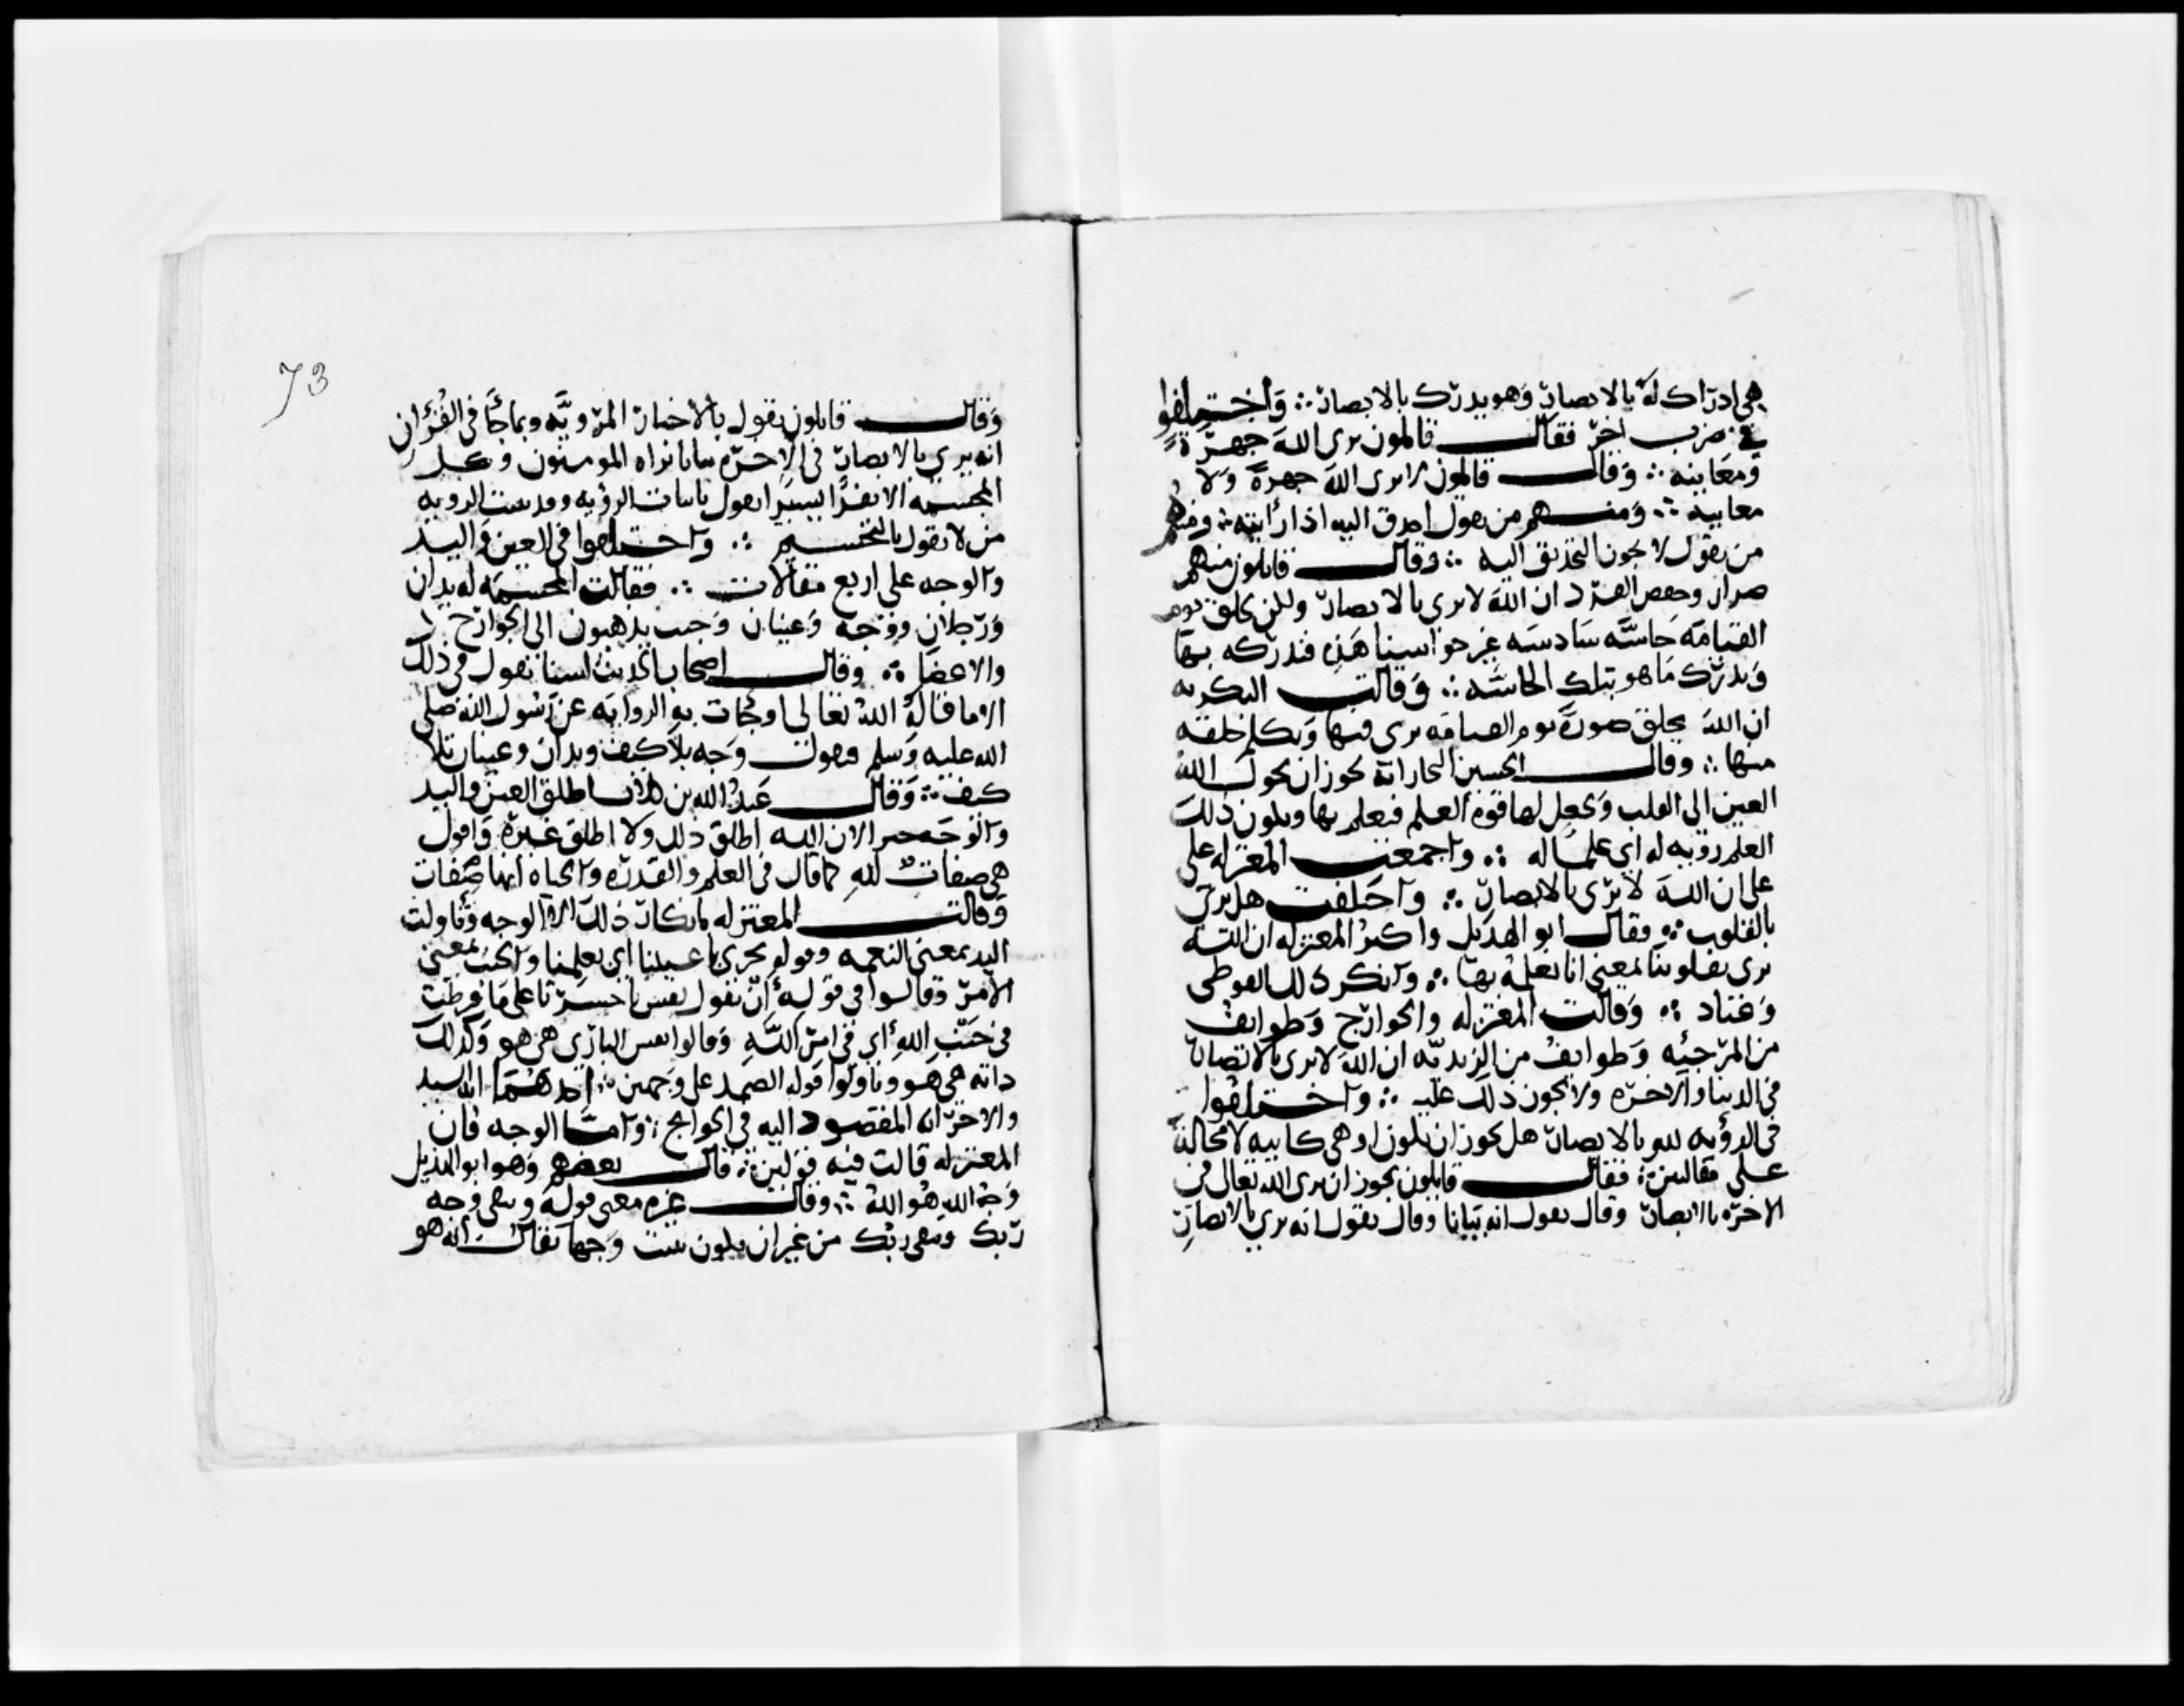 هي ادراك له بالابصار وهو يدرك بالابصار ∴ واختلفوا
في ضرب اخر فقال قائلون يرى الله جهرة
ومعاينة ∴ وقال قائلون لا يرى الله جهرة ولا
معاينة ∴ ومنهم من يقول احدق اليه اذا رأيته ∴ ومنهم
من يقول لا يجوز التحديق اليه ∴ وقال قائلون منهم
ضرار وحفص الفرد ان الله لا يرى بالابصار ولكن يخلق يوم
القيامة حاسة سادسة غير حواسنا هذه فندركه بها
وندرك ما هو بتلك الحاسة ∴ وقالت البكرية
ان الله يخلق صورة يوم القيامة يرى فيها ويكلم خلقه
منها ∴ وقال الحسين النجار انه يجوز ان يحول الله
العين الى القلب ويجعل لها قوة العلم فيعلم بها ويكون ذلك
العلم رؤية له اي علما له ∴ واجمعت المعتزلة على
على ان الله لا يرى بالابصار ∴ واختلفت هل يرى
بالقلوب ∴ فقال ابو الهذيل واكثر المعتزلة ان الله
يرى بقلوبنا بمعنى انا نعلمه بها ∴ وانكر ذلك الفوطي
وعباد ∴ وقالت المعتزلة والخوارج وطوايف
من المرجئة وطوايف من الزيدية ان الله لا يرى بالابصار
في الدنيا والاخرة ولا يجوز ذلك عليه ∴ واختلفوا
في الرؤية لله بالابصار هل يجوز ان يكون او هي كاينة لا محالة
على مقالتين ∴ فقال قائلون يجوز ان يرى الله تعالى في
الاخرة بالابصار وقال نقول انه بتاتا وقال نقول انه يرى بالابصار
73
وقال قائلون نقول بالاخبار المروية وبما جا في القران
انه يرى بالابصار في الاخرة بتاتا يراه المومنون وكل
المجسمة الا نفرا يسيرا يقول باثبات الرؤية وقد يثبت الرؤية
من لا يقول بالتجسيم ∴ واختلفوا في العين واليد
والوجه على اربع مقالات ∴ فقالت المجسمة له يدان
ورجلان ووجه وعينان وجنب يذهبون الى الجوارح
والاعضا ∴ وقال اصحاب الحديث لسنا نقول في ذلك
الا ما قاله الله تعالى او جات به الرواية عن رسول الله صلى
الله عليه وسلم فنقول وجه بلا كيف ويدان وعينان بلا
كيف ∴ وقال عبد الله بن كلاب اطلق العين واليد
والوجه خبرا لان الله اطلق ذلك ولا اطلق غيره واقول
هي صفات لله كما قال في العلم والقدرة والحياة انها صفات
وقالت المعتزلة بانكار ذلك الا الوجه وتاولت
اليد بمعنى النعمة وقوله تجري باعيننا اي بعلمنا والجنب بمعنى
الامر وقالوا في قوله أن تقول نفس يا حسرتا على ما فرطت
في جنب الله أي في امر الله وقالوا نفس الباري هي هو وكذلك
ذاته هي هو وتاولوا قوله الصمد على وجهين ∴ احدهما انه السيد
والاخر انه المقصود اليه في الحوايج ∴ واما الوجه فان
المعتزلة قالت فيه قولين ∴ قال بعضهم وهو ابو الهذيل
وجه الله هو الله ∴ وقال غيره معنى قوله ويبقى وجه
ربك ويبقى ربك من غير ان يكون يثبت وجها يقال انه هو